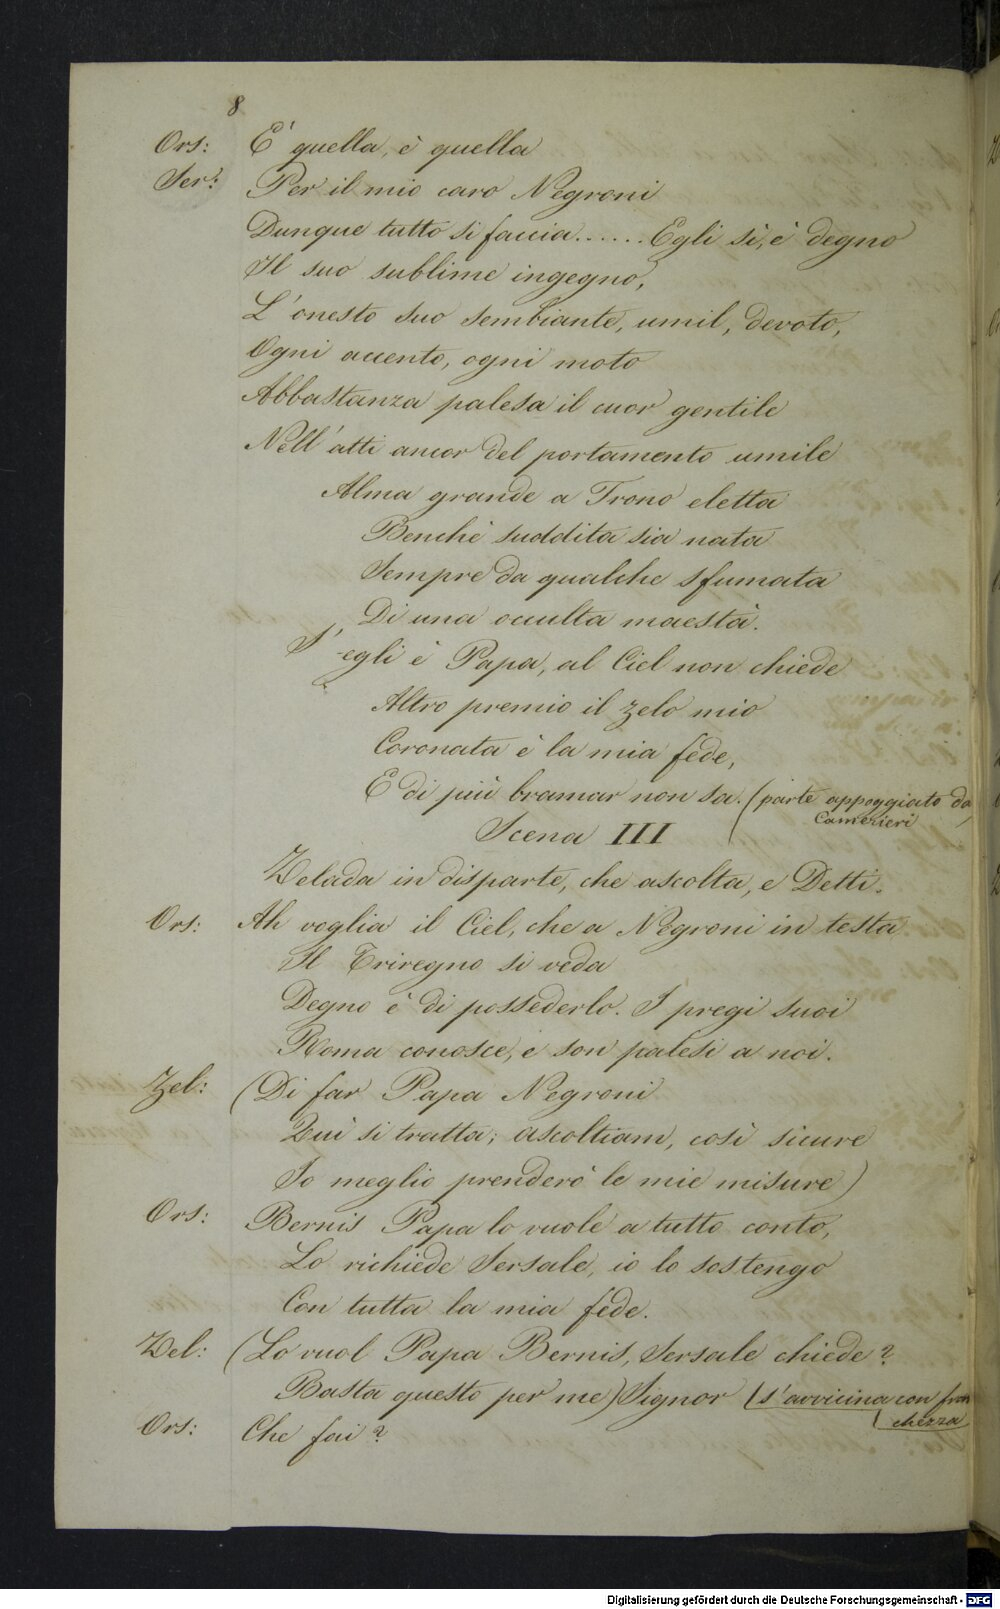 8
Ors: E' quella, è quella
Ser: Per il mio caro Negroni
Dunque tutto si faccia...... Egli sì, è degno
Il suo sublime ingegno,
L'onesto suo sembiante, umil, devoto,
Ogni accento, ogni moto
Abbastanza palesa il cuor gentile
Nell'atti ancor del portamento umile
Alma grande a Trono eletta
Benchè suddita sia nata
Sempre da qualche sfumata
Di una occulta maestà.
S'egli è Papa, al Ciel non chiede
Altro premio il zelo mio
Coronata è la mia fede,
E di più bramar non sa. (parte appoggiato da
Camerieri
Scena III
Zelada in disparte, che ascolta, e Detti.
Ors: Ah voglia il Ciel, che a Negroni in testa
Il Triregno si veda
Degno è di possederlo. I pregi suoi
Roma conosce, e son palesi a noi.
Zel: (Di far Papa Negroni
Quì si tratta; ascoltiam, così sicure
Io meglio prenderò le mie misure)
Ors: Bernis Papa lo vuole a tutto conto,
Lo richiede Sersale, io lo sostengo
Con tutta la mia fede.
Zel: (Lo vuol Papa Bernis, Sersale chiede?
Basta questo per me) Signor (s'avvicina con fran
chezza
Ors: Che fai?
Digitalisierung gefördert durch die Deutsche Forschungsgemeinschaft - DFG